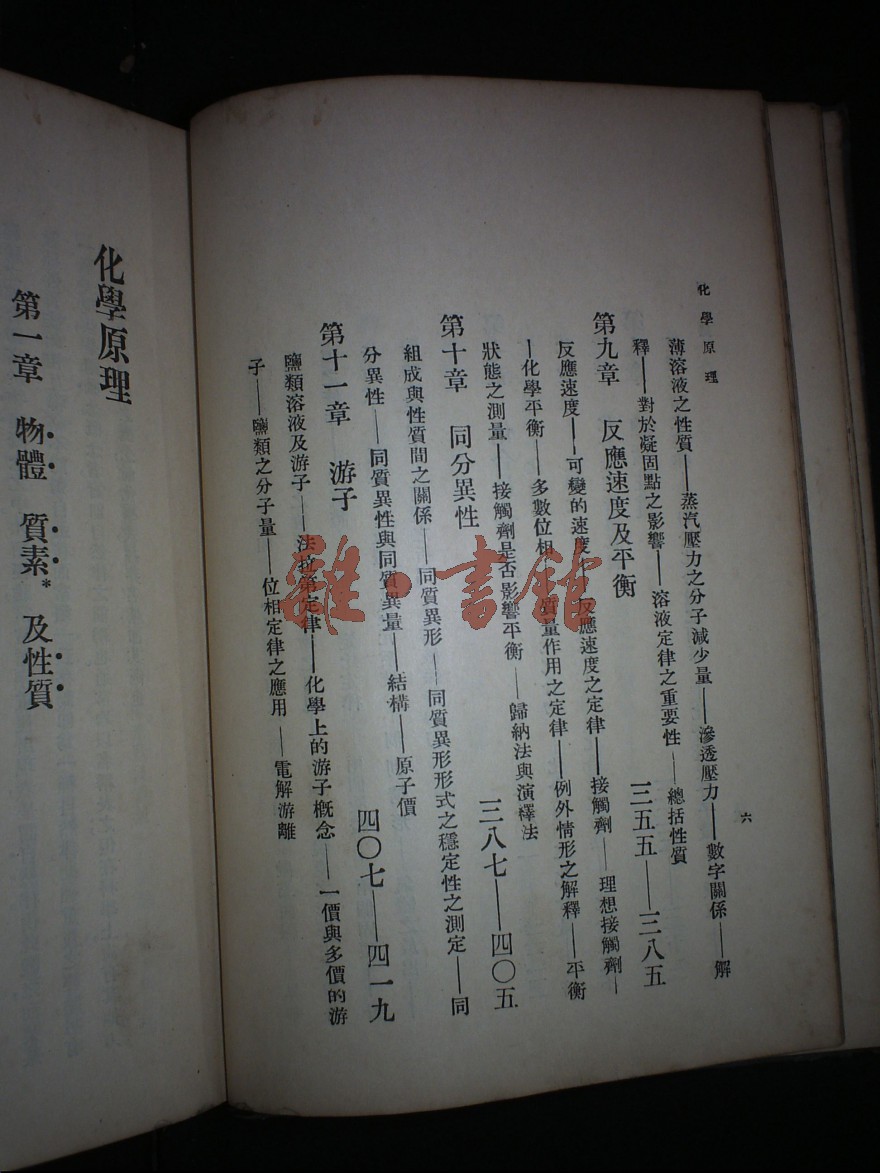 化學原理
六
薄溶液之性質——蒸汽壓力之分子減少量——滲透壓力——數字關係——解
釋——對於凝固點之影響——溶液定律之重要性——總括性質
第九章 反應速度及平衡 三五五——三八五
反應速度——可變的速度 反應速度之定律——接觸劑——理想接觸劑—
—化學平衡——多數位相 質量作用之定律——例外情形之解釋——平衡
狀態之測量——接觸劑是否影響平衡——歸納法與演繹法
第十章 同分異性 三八七——四〇五
組成與性質間之關係——同質異形——同質異形形式之穩定性之測定——同
分異性——同質異性與同質異量——結構——原子價
第十一章 游子 四〇七——四一九
鹽類溶液及游子——法拉第定律——化學上的游子概念——一價與多價的游
子——鹽類之分子量——位相定律之應用——電解游離
化學原理
第一章 物體 質素* 及性質
雜·書館